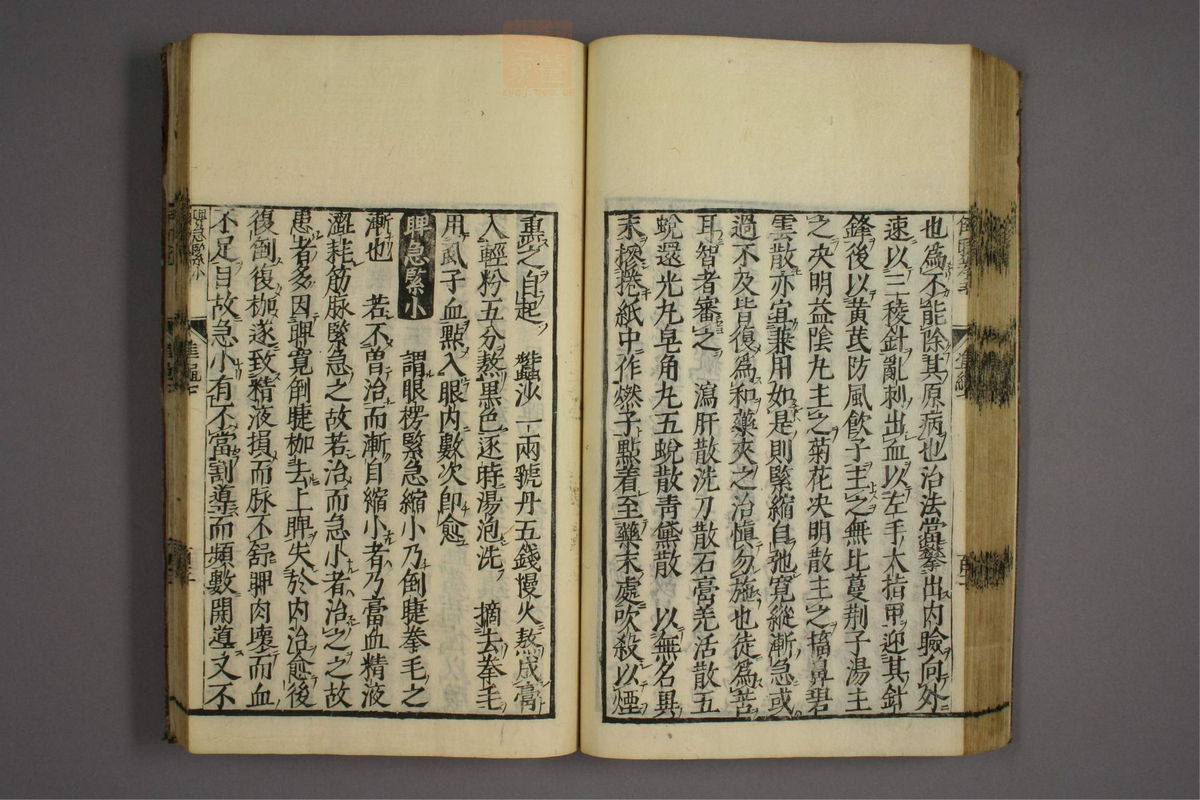 也爲不能除其原病也治法當攀出内瞼向外
速以三稜針亂刺出血以左手大指甲迎其針
鋒後以黄芪防風飲子主之無比蔓荆子湯主
之决明益陰丸主之菊花决明散主之搐鼻碧
雲散亦宜兼用如是則緊縮自弛寛縱漸急或
過不及皆復爲和藥夾之治慎勿施也徒爲苦
耳智者審之　瀉肝散洗刀散石膏羌活散五
蛻還光丸皂角丸五蛻散青黛散　以無名異
末摻捲紙中作燃子點着至藥末處吹殺以煙
熏之自起　蠶沙一兩虢丹五錢慢火熬成膏
入輕粉五分熬黒色逐時湯泡洗　摘去拳毛
用虱子血點入眼内數次即愈
睥急緊小　謂眼楞緊急縮小乃倒睫拳毛之
漸也　若不曽治而漸自縮小者乃膏血精液
澀耗筋脉緊急之故若治而急小者治之之故
患者多因睥寛倒睫枷去上睥失於内治愈後
復倒復枷遂致精液損而脉不舒睥肉壞而血
不足目故急小有不當割導而頻數開導又不
睥急緊小